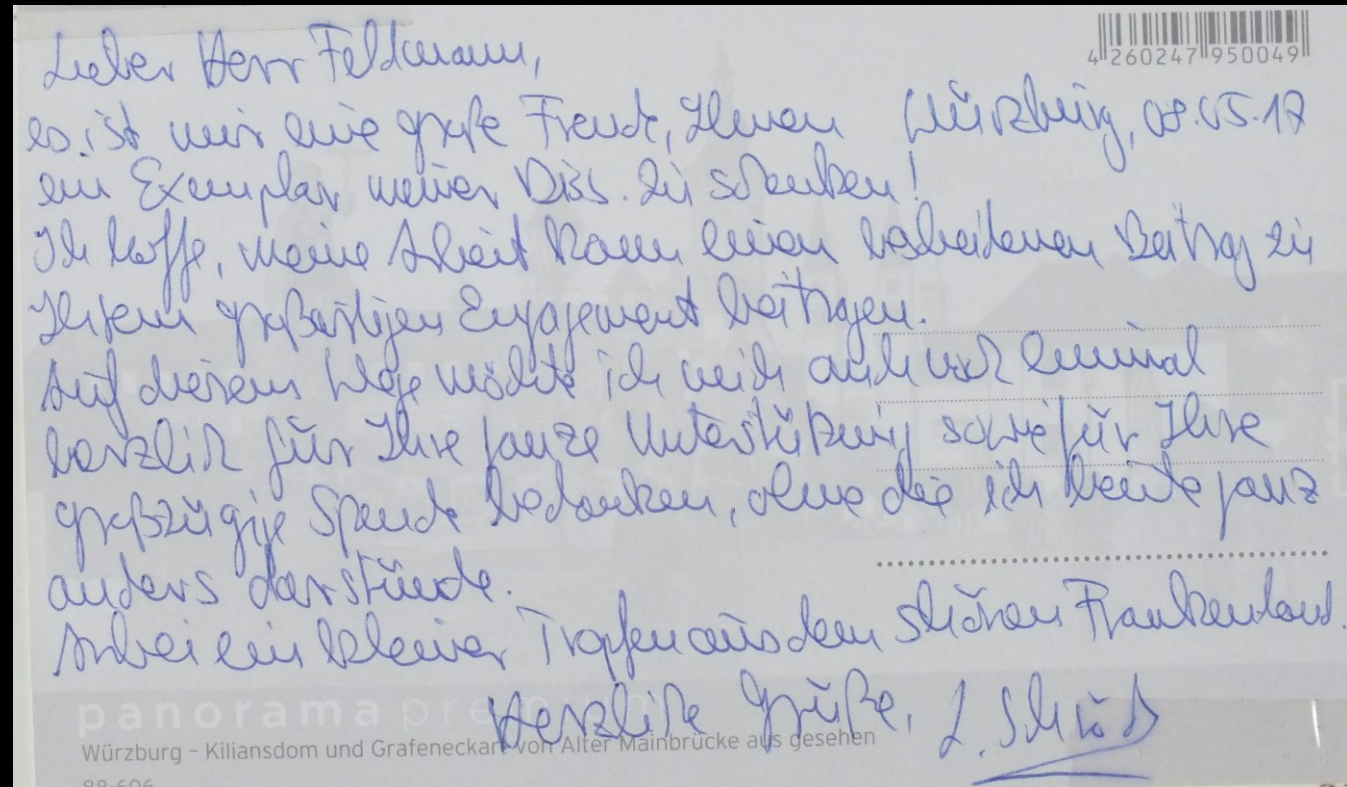 Lieber Herr Feldmann,
4 260247 950049
es ist mir eine große Freude, Ihnen Würzburg, 08.05.17
ein Exemplar meiner Diss. zu schenken!
Ich hoffe, meine Arbeit kann einen bescheidenen Beitrag zu
Ihrem großartigen Engagement beitragen.
Auf diesem Wege möchte ich mich auch noch einmal
herzlich für Ihre ganze Unterstützung sowie für Ihre
großzügige Spende bedanken, ohne die ich heute ganz
anders darstünde.
Anbei ein kleiner Tropfen aus dem schönen Frankenland.
Herzliche Grüße, J.
panorama premium
Würzburg – Kiliansdom und Grafeneckart von Alter Mainbrücke aus gesehen
88-606